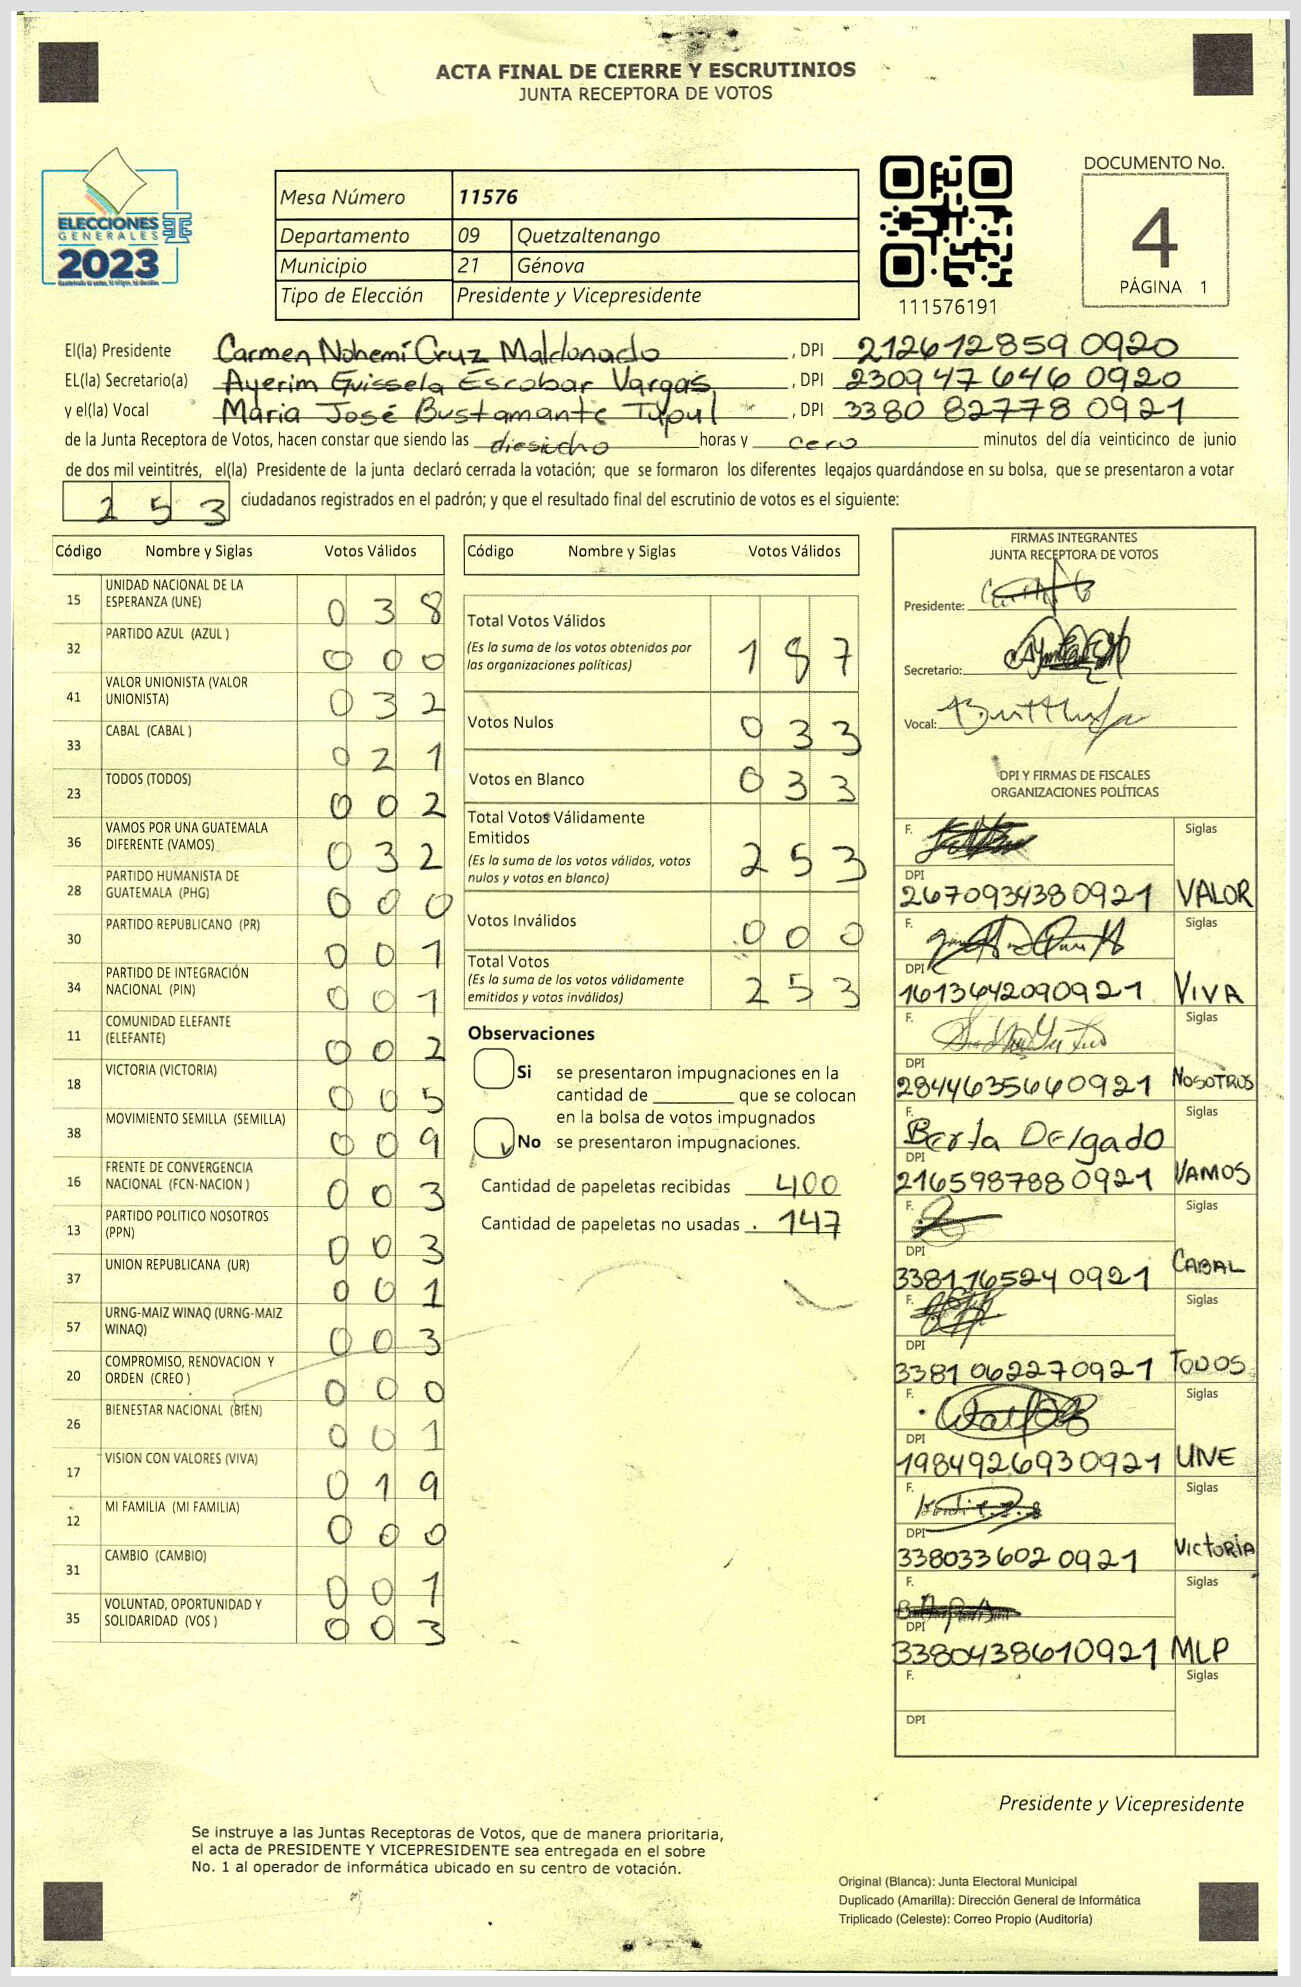 ACTA FINAL DE CIERRE Y ESCRUTINIOS
JUNTA RECEPTORA DE VOTOS
ELECCIONES
GENERALES
2023
Mesa Número 11576
Departamento 09 Quetzaltenango
Municipio 21 Génova
Tipo de Elección Presidente y Vicepresidente
111576191
DOCUMENTO No.
4
PÁGINA 1
El(la) Presidente Carmen Nohemí Cruz Maldonado , DPI 212612859 0920
EL(la) Secretario(a) Ayerim Guissela Escobar Vargas , DPI 230947646 0920
y el(la) Vocal Maria José Bustamante , DPI 3380 82778 0921
de la Junta Receptora de Votos, hacen constar que siendo las diesicho horas y cero minutos del día veinticinco de junio
de dos mil veintitrés, el(la) Presidente de la junta declaró cerrada la votación; que se formaron los diferentes legajos quardándose en su bolsa, que se presentaron a votar
2 5 3 ciudadanos registrados en el padrón; y que el resultado final del escrutinio de votos es el siguiente:
Código Nombre y Siglas Votos Válidos
15 UNIDAD NACIONAL DE LA ESPERANZA (UNE) 0 3 8
32 PARTIDO AZUL (AZUL ) 0 0 0
41 VALOR UNIONISTA (VALOR UNIONISTA) 0 3 2
33 CABAL (CABAL ) 0 2 1
23 TODOS (TODOS) 0 0 2
36 VAMOS POR UNA GUATEMALA DIFERENTE (VAMOS) 0 3 2
28 PARTIDO HUMANISTA DE GUATEMALA (PHG) 0 0 0
30 PARTIDO REPUBLICANO (PR) 0 0 1
34 PARTIDO DE INTEGRACIÓN NACIONAL (PIN) 0 0 1
11 COMUNIDAD ELEFANTE (ELEFANTE) 0 0 2
18 VICTORIA (VICTORIA) 0 0 5
38 MOVIMIENTO SEMILLA (SEMILLA) 0 0 9
16 FRENTE DE CONVERGENCIA NACIONAL (FCN-NACION ) 0 0 3
13 PARTIDO POLITICO NOSOTROS (PPN) 0 0 3
37 UNION REPUBLICANA (UR) 0 0 1
57 URNG-MAIZ WINAQ (URNG-MAIZ WINAQ) 0 0 3
20 COMPROMISO, RENOVACION Y ORDEN (CREO ) 0 0 0
26 BIENESTAR NACIONAL (BIEN) 0 0 1
17 VISION CON VALORES (VIVA) 0 1 9
12 MI FAMILIA (MI FAMILIA) 0 0 0
31 CAMBIO (CAMBIO) 0 0 1
35 VOLUNTAD, OPORTUNIDAD Y SOLIDARIDAD (VOS ) 0 0 3
Código Nombre y Siglas Votos Válidos
Total Votos Válidos 1 8 7
(Es la suma de los votos obtenidos por
las organizaciones políticas)
Votos Nulos 0 3 3
Votos en Blanco 0 3 3
Total Votos Válidamente
Emitidos 2 5 3
(Es la suma de los votos válidos, votos
nulos y votos en blanco)
Votos Inválidos 0 0 0
Total Votos 2 5 3
(Es la suma de los votos válidamente
emitidos y votos inválidos)
Observaciones
Si se presentaron impugnaciones en la
cantidad de ________ que se colocan
en la bolsa de votos impugnados
No se presentaron impugnaciones.
Cantidad de papeletas recibidas 400
Cantidad de papeletas no usadas . 147
FIRMAS INTEGRANTES
JUNTA RECEPTORA DE VOTOS
Presidente:
Secretario:
Vocal:
DPI Y FIRMAS DE FISCALES
ORGANIZACIONES POLÍTICAS
F. Siglas
DPI
267093438 0921 VALOR
F. Siglas
DPI
1613642090921 VIVA
F. Siglas
DPI
2844635660921 NOSOTROS
F. Berta Delgado Siglas
DPI
216598788 0921 VAMOS
F. Siglas
DPI
338116524 0921 CABAL
F. Siglas
DPI
3381 062270921 TODOS
F. Siglas
DPI
1984926930921 UNE
F. Siglas
DPI
338033602 0921 VICTORIA
F. Siglas
DPI
3380438610921 MLP
F. Siglas
DPI
Presidente y Vicepresidente
Se instruye a las Juntas Receptoras de Votos, que de manera prioritaria,
el acta de PRESIDENTE Y VICEPRESIDENTE sea entregada en el sobre
No. 1 al operador de informática ubicado en su centro de votación.
Original (Blanca): Junta Electoral Municipal
Duplicado (Amarilla): Dirección General de Informática
Triplicado (Celeste): Correo Propio (Auditoría)